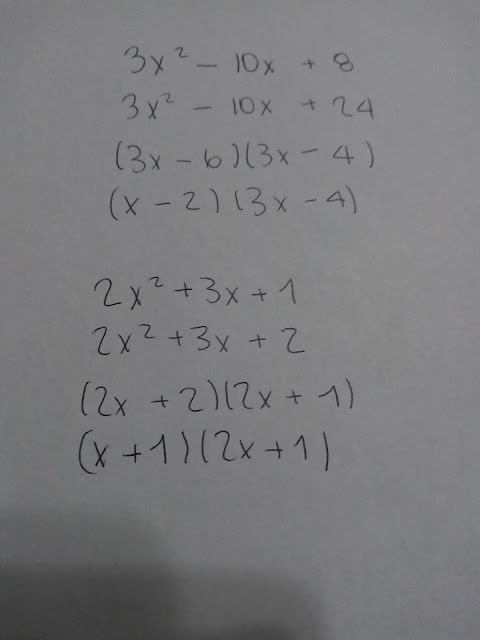 3x² - 10x + 8
3x² - 10x + 24
(3x - 6)(3x - 4)
(x - 2)(3x - 4)
2x² + 3x + 1
2x² + 3x + 2
(2x + 2)(2x + 1)
(x + 1)(2x + 1)